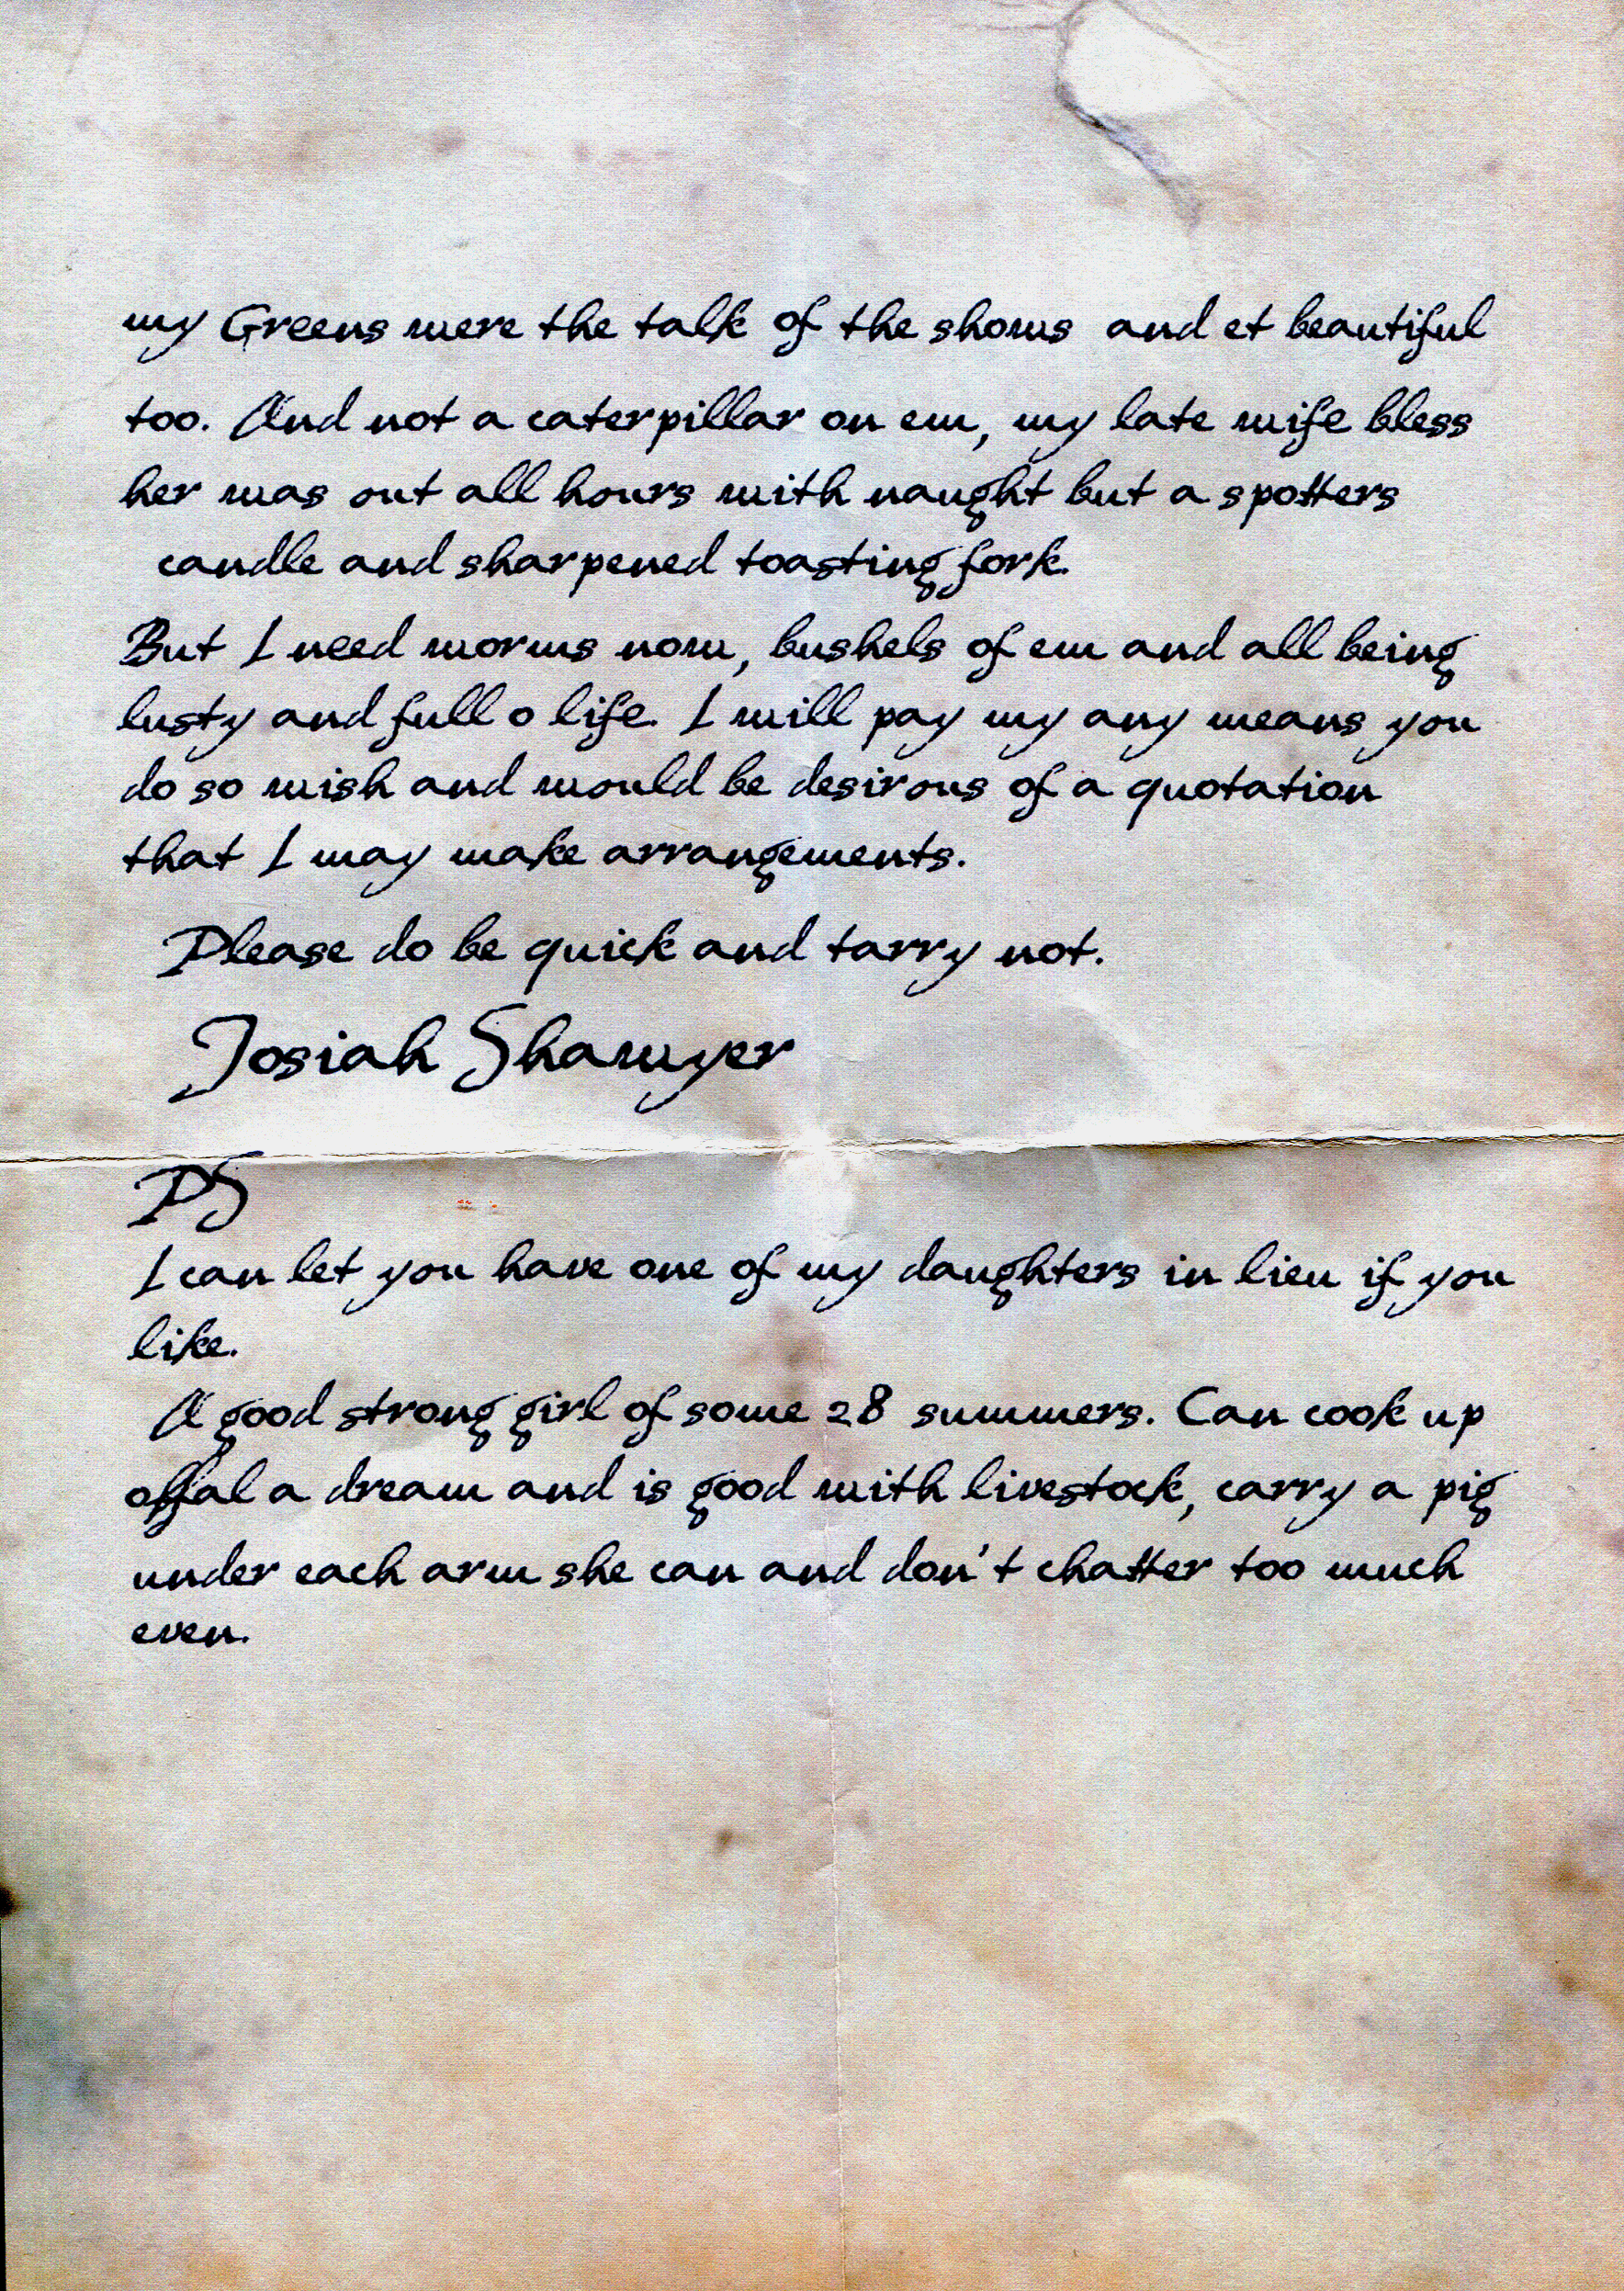 my Greens were the talk of the shows and et beautiful
too. And not a caterpillar on em, my late wife bless
her was out all hours with naught but a spotters
candle and sharpened toasting fork.
But I need worms now, bushels of em and all being
lusty and full o life. I will pay my any means you
do so wish and would be desirous of a quotation
that I may make arrangements.
Please do be quick and tarry not.
Josiah Shawyer
PS
I can let you have one of my daughters in lieu if you
like.
A good strong girl of some 28 summers. Can cook up
offal a dream and is good with livestock, carry a pig
under each arm she can and don't chatter too much
even.